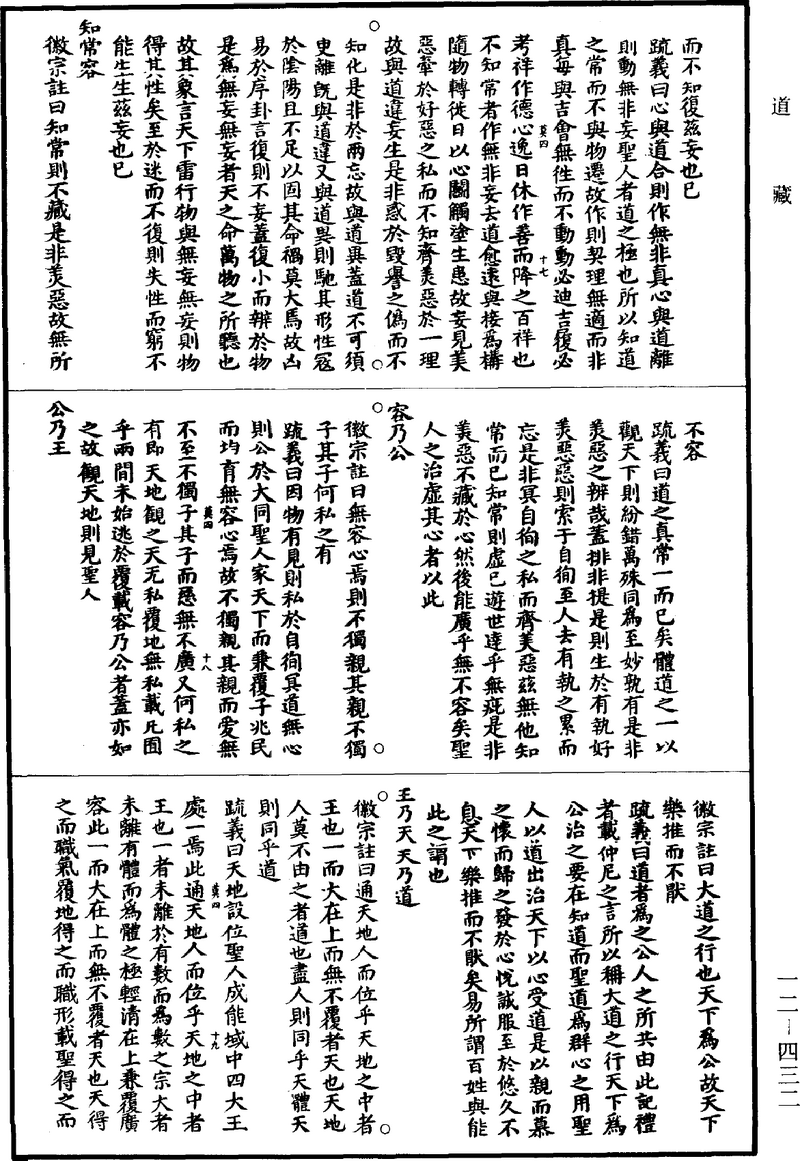 道藏
而不知復茲妄也已
疏義曰心與道合則作無非真心與道離
則動無非妄聖人者道之極也所以知道
之常而不與物遷故作則契理無適而非
真每與吉會無往而不動動必迪吉復必
考祥作德心逸日休作善而降之百祥也
莫四
十七
不知常者作無非妄去道愈遠與接爲構
隨物轉徙日以心鬬觸塗生患故妄見美
惡牽於好惡之私而不知齊美惡於一理
故與道違妄生是非惑於毀譽之僞而不
知化是非於兩忘故與道異蓋道不可須
臾離旣與道違又與道異則馳其形性寇
於陰陽且不足以固其命禍莫大焉故凶
易於序卦言復則不妄蓋復小而辨於物
是爲無妄無妄者天之命萬物之所聽也
故其象言天下雷行物與無妄無妄則物
得其性矣至於迷而不復則失性而窮不
能生生茲妄也已
知常容
徽宗註曰知常則不藏是非美惡故無所
不容
疏義曰道之真常一而已矣體道之一以
觀天下則紛錯萬殊同爲至妙孰有是非
美惡之辨哉蓋排非提是則生於有執好
美惡惡則索于自徇至人去有執之累而
忘是非冥自徇之私而齊美惡茲無他知
常而已知常則虛已遊世達乎無疵是非
美惡不藏於心然後能廣乎無不容矣聖
人之治虛其心者以此
容乃公
徽宗註曰無容心焉則不獨親其親不獨
子其子何私之有
疏義曰因物有見則私於自徇冥道無心
則公於大同聖人家天下而兼覆子兆民
而均育無容心焉故不獨親其親而愛無
莫四
十八
不至不獨子其子而慈無不廣又何私之
有即天地觀之天无私覆地無私載凡囿
乎兩間未始逃於覆載容乃公者蓋亦如
之故觀天地則見聖人
公乃王
徽宗註曰大道之行也天下爲公故天下
樂推而不猒
疏義曰道者爲之公人之所共由此記禮
者載仲尼之言所以稱大道之行天下爲
公治之要在知道而聖道爲群心之用聖
人以道出治天下以心受道是以親而慕
之懷而歸之發於心悅誠服至於悠久不
息天下樂推而不猒矣易所謂百姓與能
此之謂也
王乃天天乃道
徽宗註曰通天地人而位乎天地之中者
王也一而大在上而無不覆者天也天地
人莫不由之者道也盡人則同乎天體天
則同乎道
疏義曰天地設位聖人成能域中四大王
莫四
十九
處一焉此通天地人而位乎天地之中者
王也一者未離於有數而爲數之宗大者
未離有體而爲體之極輕清在上兼覆廣
容此一而大在上而無不覆者天也天得
之而職氣覆地得之而職形載聖得之而
一二—四三二